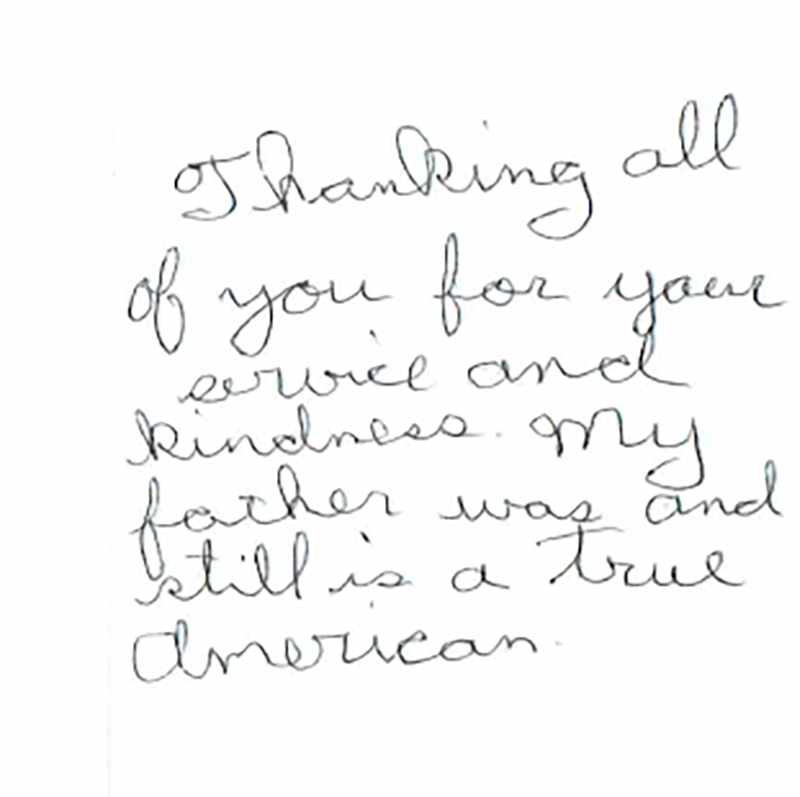 Thanking all
of you for your
service and
kindness. My
father was and
still is a true
American.